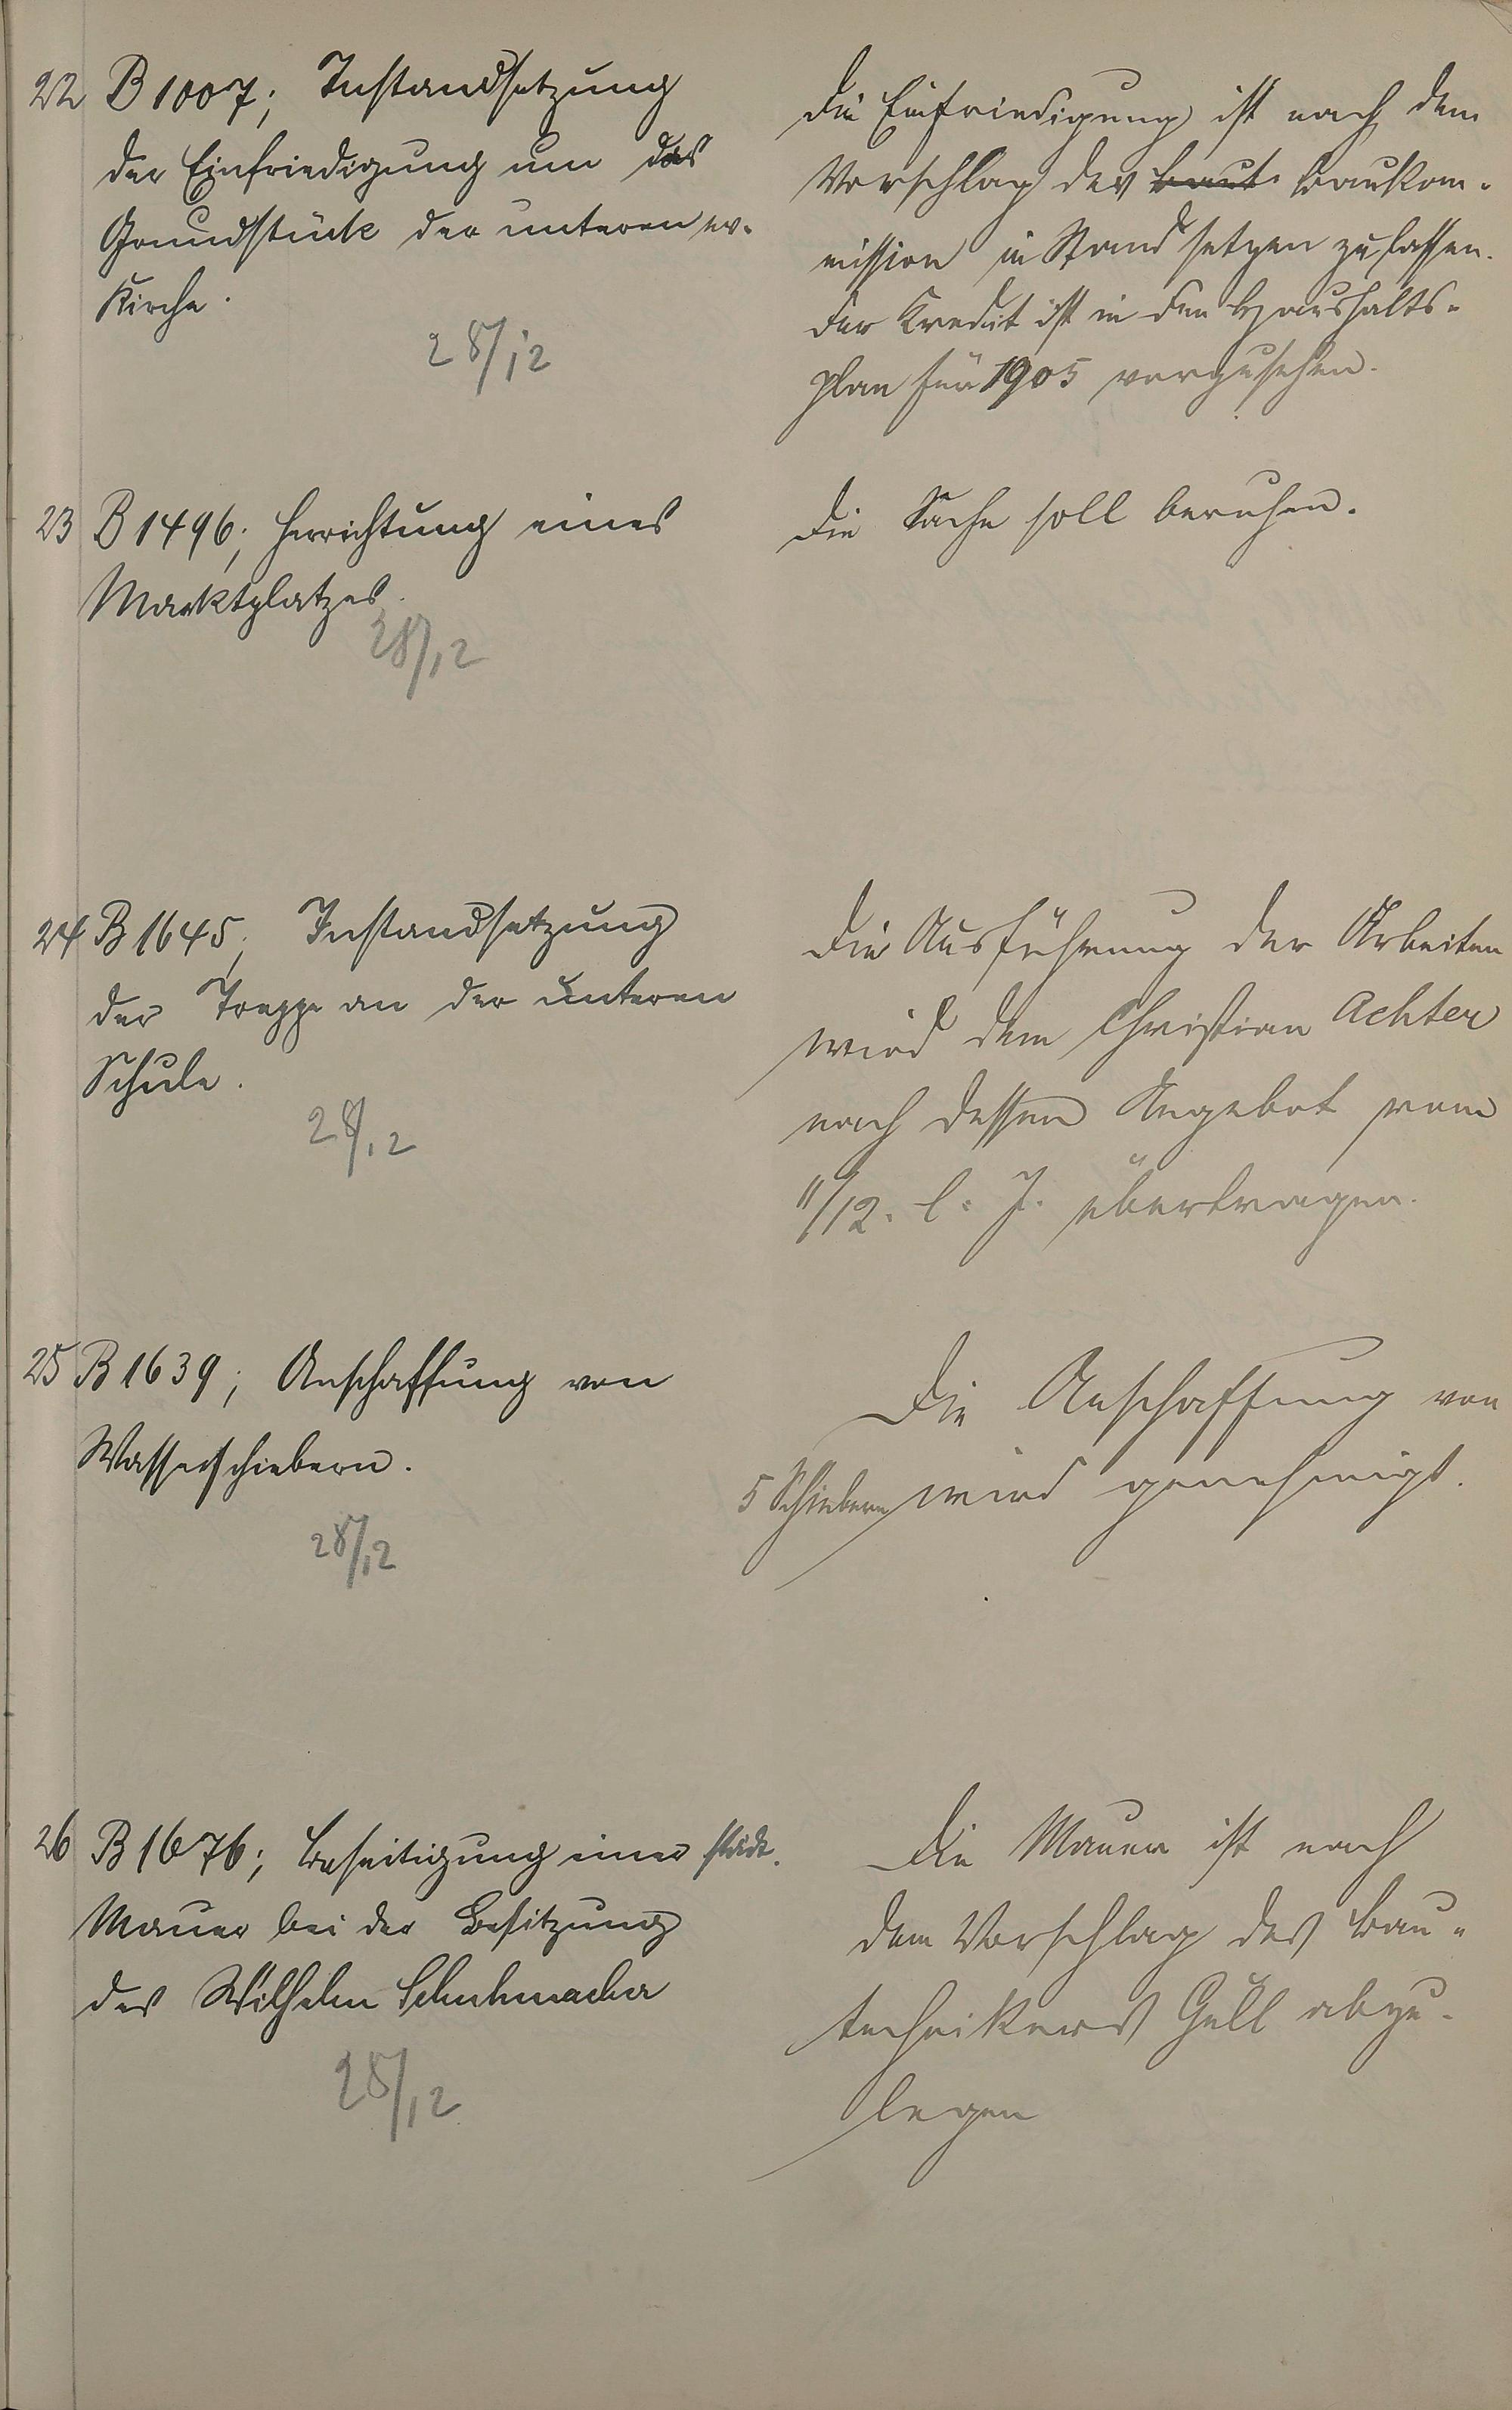 22 B 1007; Instandsetzung
der Einfriedigung um das
Grundstück der unteren ev.
Kirche.
28/12
Die Einfriedigung ist nach dem
Vorschlag der baut. Baukom-
mission in Stand setzen zu lassen.
Der Kredit ist in den Haushalts-
plan für 1905 vorzusehen.
23 B 1496; Herrichtung eines
Marktplatzes.
28/12
Die Sache soll beruhen.
24 B 1645; Instandsetzung
der Treppe an der unteren
Schule.
28/12
Die Ausführung der Arbeiten
wird dem Christian Achter
nach dessen Angebot vom
11/12. l. J. übertragen.
25 B 1639; Anschaffung von
Wasserschiebern.
28/12
Die Anschaffung von
5 Schiebern wird genehmigt.
26 B 1676; Beseitigung einer städt.
Mauer bei der Besitzung
des Wilhelm Schuhmacher
28/12
Die Mauer ist nach
dem Vorschlag des Bau-
technikers Güll abzu-
legen